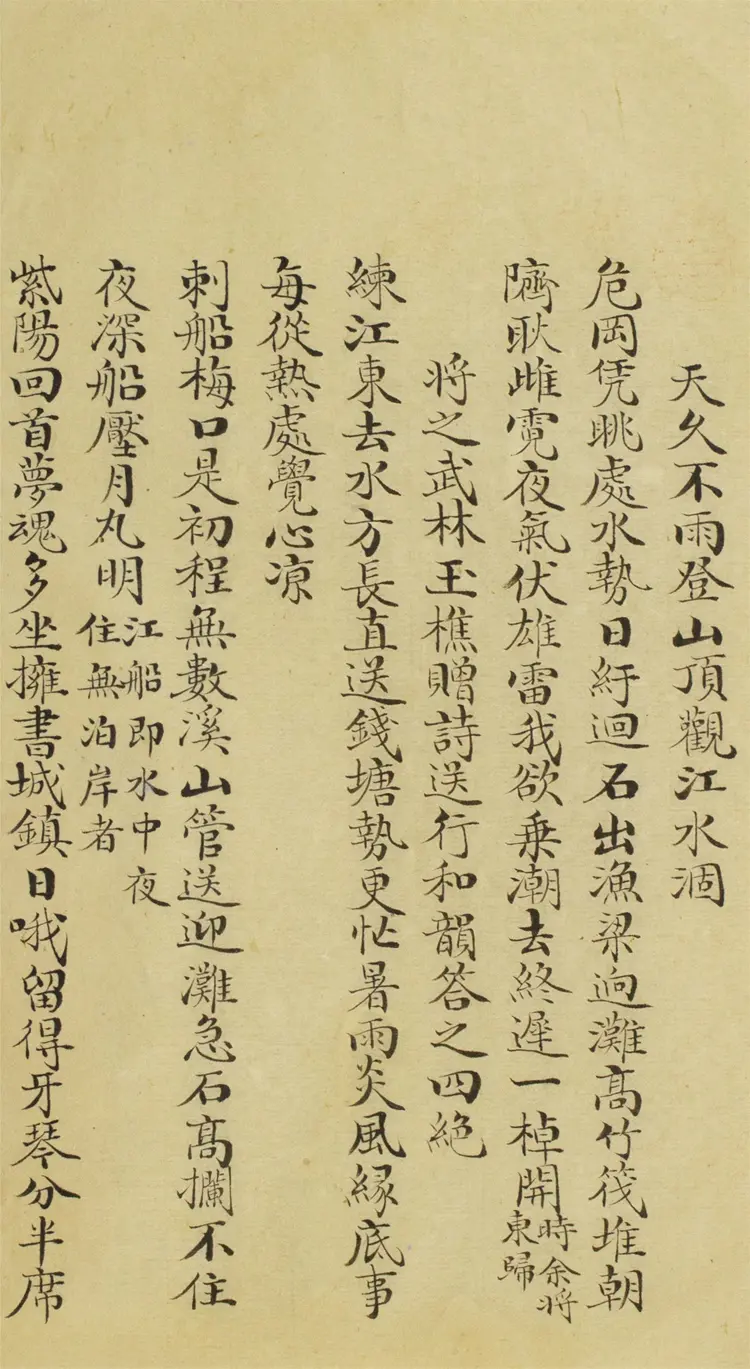 天久不雨登山頂觀江水涸
危岡凭眺處水勢日紆迴石出漁梁逈灘高竹筏堆朝
隮耿雌霓夜氣伏雄雷我欲乗潮去終遲一棹開時余將
東歸
將之武林玉樵贈詩送行和韻答之四絶
練江東去水方長直送錢塘勢更忙暑雨炎風緣底事
每從熱處覺心凉
刺船梅口是初程無數溪山管送迎灘急石高攔不住
夜深船壓月丸明江船即水中夜
住無泊岸者
紫陽回首夢魂多坐擁書城鎮日哦留得牙琴分半席